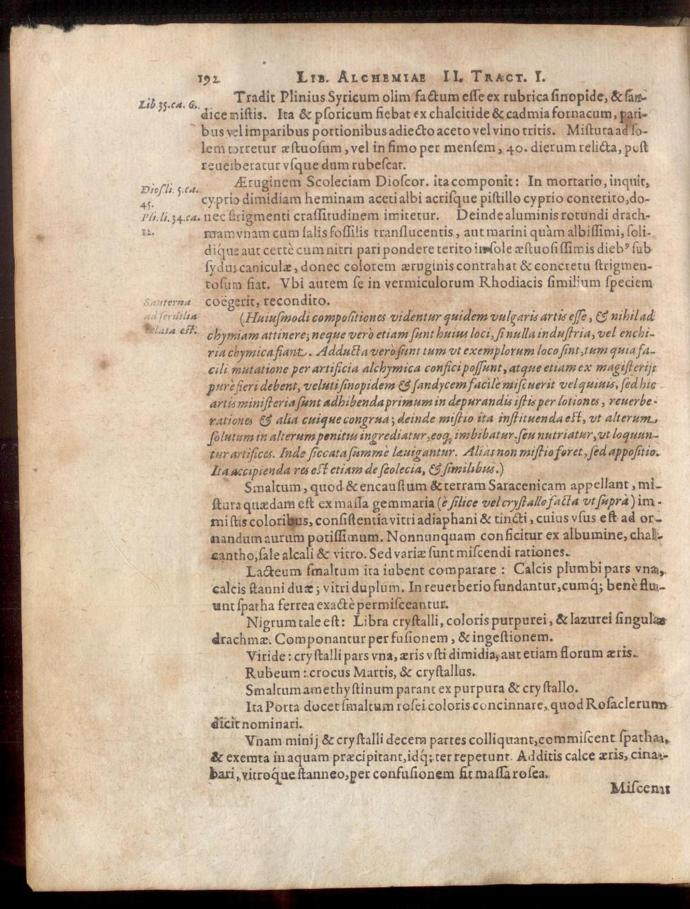 192 LIB. ALCHEMIAE II. TRACT. I.
Lib 35. ca. 6.
Tradit Plinius Syricum olim factum esse ex rubrica sinopide, & san-
dice mistis. Ita & psoricum fiebat ex chalcitide & cadmia fornacum, pari-
bus vel imparibus portionibus adiecto aceto vel vino tritis. Mistura ad so-
lem torretur æstuosum, vel in fimo per mensem, 40. dierum relicta, post
reuerberatur vsque dum rubescat.
Diosc li. 5. ca.
45.
Pli. li. 34. ca.
12.
Æruginem Scoleciam Dioscor. ita componit: In mortario, inquit,
cyprio dimidiam heminam aceti albi acrisque pistillo cyprio conterito, do-
nec strigmenti crassitudinem imitetur. Deinde aluminis rotundi drach-
mam vnam cum salis fossilis translucentis, aut marini quàm albissimi, soli-
dique aut certè cum nitri pari pondere terito in sole æstuosissimis diebꝰ sub
sydus caniculæ, donec colorem æruginis contrahat & concretu strigmen-
tosum fiat. Vbi autem se in vermiculorum Rhodiacis similium speciem
coëgerit, recondito.
Santerna
ad ferulia
relata est.
(Huiusmodi compositiones videntur quidem vulgaris artis esse, & nihil ad
chymiam attinere; neque verò etiam sunt huius loci, si nulla industria, vel enchi-
ria chymica fiant. Adducta verò sunt tum vt exemplorum loco sint, tum quia fa-
cili mutatione per artificia alchymica confici possunt, atque etiam ex magisterijs
purè fieri debent, veluti sinopidem & sandycem facile miscuerit vel quiuis, sed hic
artis ministeria sunt adhibenda primum in depurandis istis per lotiones, reuerbe-
rationes & alia cuique congrua; deinde mistio ita instituenda est, vt alterum
solutum in alterum penitus ingrediatur, eoq; imbibatur. seu nutriatur, vt loquun-
tur artifices. Inde siccata summè læuigantur. Alias non mistio foret, sed appositio.
Ita accipienda res est etiam de scolecia, & similibus.)
Smaltum, quod & encaustum & terram Saracenicam appellant, mi-
stura quædam est ex massa gemmaria (è silice vel crystallo facta vt suprà) im-
mistis coloribus, consistentia vitri adiaphani & tincti, cuius vsus est ad or-
nandum aurum potissimum. Nonnunquam conficitur ex albumine, chal-
cantho, sale alcali & vitro. Sed variæ sunt miscendi rationes.
Lacteum smaltum ita iubent comparare: Calcis plumbi pars vna,
calcis stanni duæ; vitri duplum. In reuerberio fundantur, cumq; benè flu-
unt spatha ferrea exactè permisceantur.
Nigrum tale est: Libra crystalli, coloris purpurei, & lazurei singulæ
drachmæ. Componantur per fusionem, & ingestionem.
Viride: crystalli pars vna, æris vsti dimidia, aut etiam florum æris.
Rubeum: crocus Martis, & crystallus.
Smaltum amethystinum parant ex purpura & crystallo.
Ita Porta docet smaltum rosei coloris concinnare, quod Rosaclerum
dicit nominari.
Vnam minij & crystalli decem partes colliquant, commiscent spatha,
& exemta in aquam præcipitant, idq; ter repetunt. Additis calce æris, cina-
bari, vitroque stanneo, per confusionem fit massa rosea.
Miscent